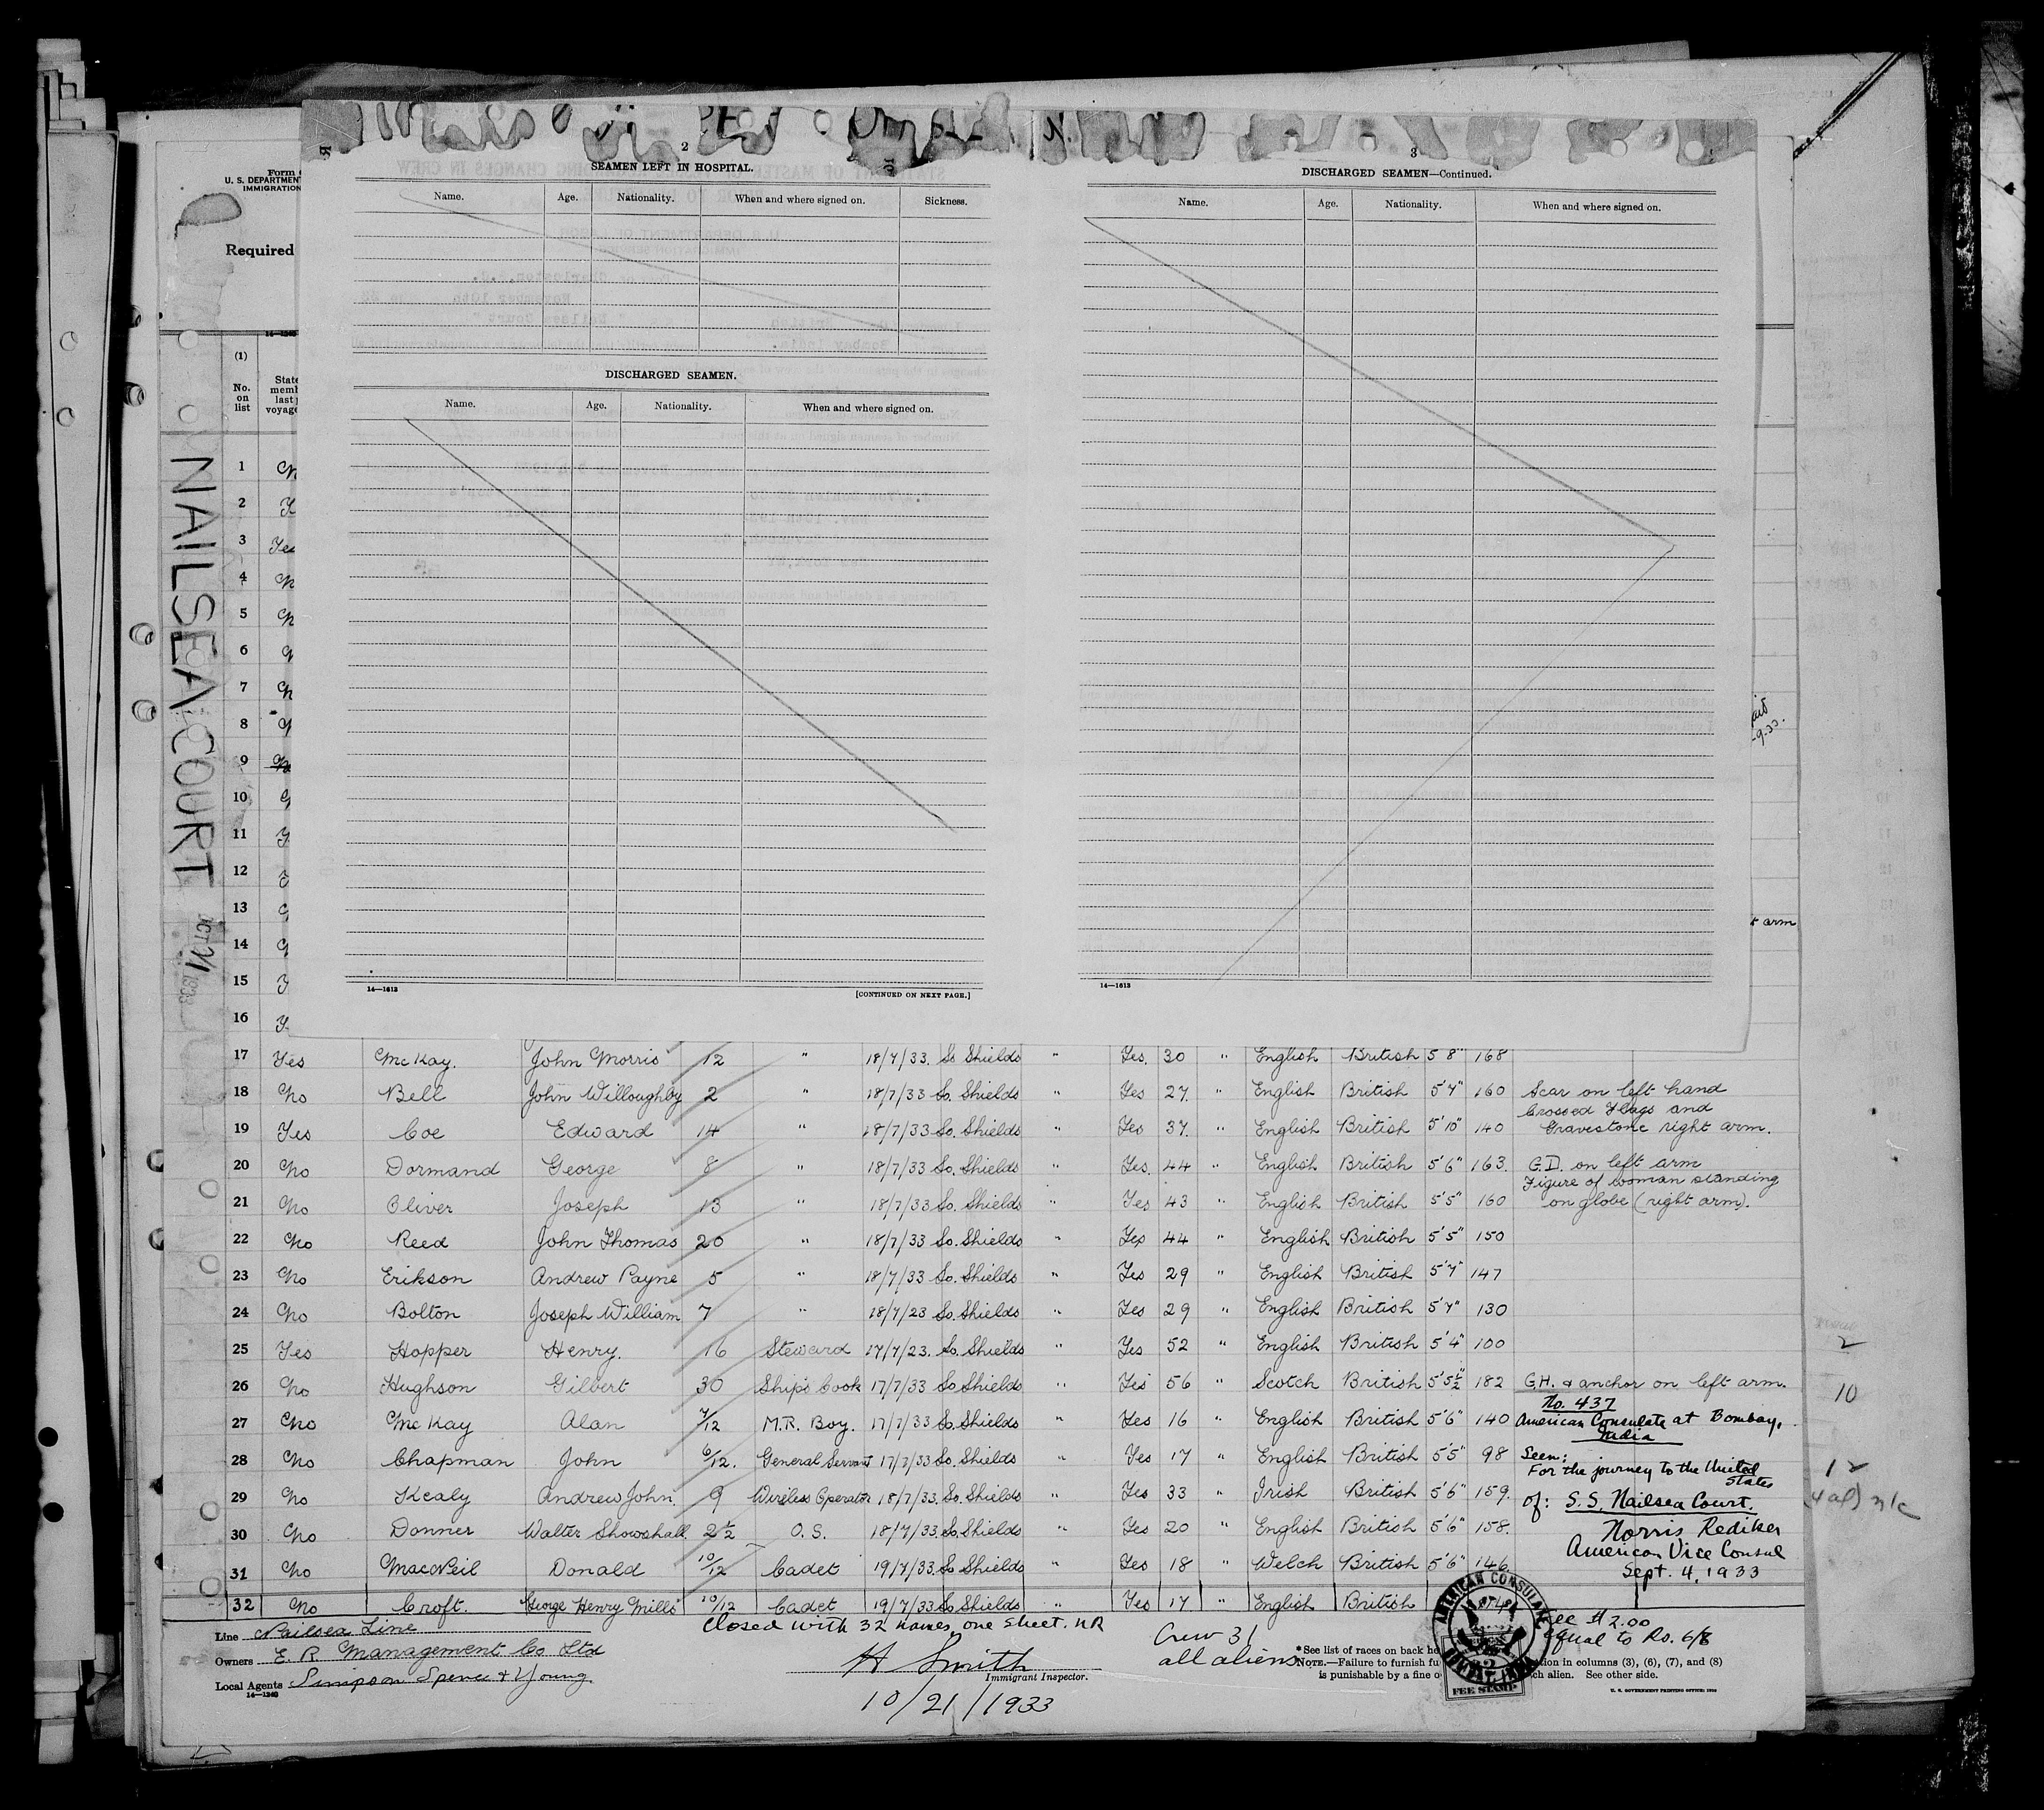 2
SEAMEN LEFT IN HOSPITAL.
Name. Age. Nationality. When and where signed on. Sickness.
DISCHARGED SEAMEN.
Name. Age. Nationality. When and where signed on.
14—1613
[CONTINUED ON NEXT PAGE.]
3
DISCHARGED SEAMEN—Continued.
Name. Age. Nationality. When and where signed on.
14—1613
Form
U. S. DEPARTMENT
IMMIGRATION
Required
(1)
No. on list
NAILSEA COURT
OCT 21 1933
1
2
3 Yes
4
5
6
7
8
9
10
11
12
13
14
15
16
arm
17 Yes McKay. John Morris 12 " 18/7/33. So Shields " Yes. 30 " English British 5'8" 168
18 No Bell John Willoughby 2 " 18/7/33 So. Shields " Yes 27. " English British 5'7" 160 Scar on left hand
19 Yes Coe Edward 14 " 18/7/33 So. Shields " Yes 37. " English British 5'10" 140 Crossed Flags and Gravestone right arm.
20 No Dormand George 8 " 18/7/33 So. Shields " Yes. 44 " English British 5'6" 163. G.D. on left arm
21 No Oliver Joseph 13 " 18/7/33 So. Shields " Yes 43 " English British 5'5" 160 Figure of woman standing on globe (right arm).
22 No Reed John Thomas 20 " 18/7/33 So. Shields " Yes 44 " English British 5'5" 150
23 No Erikson Andrew Payne 5 " 18/7/33 So. Shields " Yes 29 " English British 5'7" 147
24 No Bolton Joseph William 7 " 18/7/23 So. Shields " Yes 29 " English British 5'7" 130
25 Yes Hopper Henry. 16 Steward 17/7/23. So. Shields " Yes 52 " English British 5'4" 100
26 No Hughson Gilbert 30 Ships Cook 17/7/33 So Shields " Yes 56 " Scotch British 5'5½" 182 G.H. & anchor on left arm.
27 No McKay Alan 7/12 M.R. Boy. 17/7/33 So. Shields " Yes 16 " English British 5'6" 140
28 No Chapman John 6/12. General Servant 17/7/33 So. Shields " Yes 17 " English British 5'5" 98
29 No Kealy Andrew John. 9 Wireless Operator 18/7/33. So. Shields " Yes 33 " Irish British 5'6" 159.
30 No Donner Walter Showshall 2½ O.S. 18/7/33 So. Shields " Yes 20 " English British 5'6" 158.
31 No MacNeil Donald 10/12 Cadet 19/7/33 So Shields " Yes 18 " Welch British 5'6" 146
32 No Croft. George Henry Mills 10/12 Cadet 19/7/33 So Shields " Yes 17 " English British
No. 437
American Consulate at Bombay, India
Seen:
For the journey to the United States
of: S.S. Nailsea Court.
Norris Rediker
American Vice Consul
Sept. 4, 1933
2
10
12
Line Nailsea Line
Owners E. R. Management Co Ltd
Local Agents Simpson Spence & Young
14—1240
Closed with 32 names, one sheet. NR
H Smith
Immigrant Inspector.
10/21/1933
Crew 31
all aliens
*See list of races on back
NOTE.—Failure to furnish in columns (3), (6), (7), and (8)
is punishable by a fine alien. See other side.
U. S. GOVERNMENT PRINTING OFFICE
AMERICAN CONSULATE
FEE STAMP
Fee $2.00
equal to Rs. 6/8